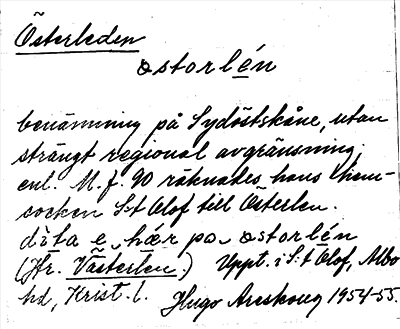 Österleden
ostorlén
benämning på Sydöstskåne, utan
strängt regional avgränsning.
enl. M. f. 90 räknades hans hem-
socken S:t Olof till Österlen.
dita e hær po ostorlén
(Jfr. Västerlen.) Uppt. i S:t Olof, Albo
hd, Krist. l. Hugo Areskoug 1954-55.